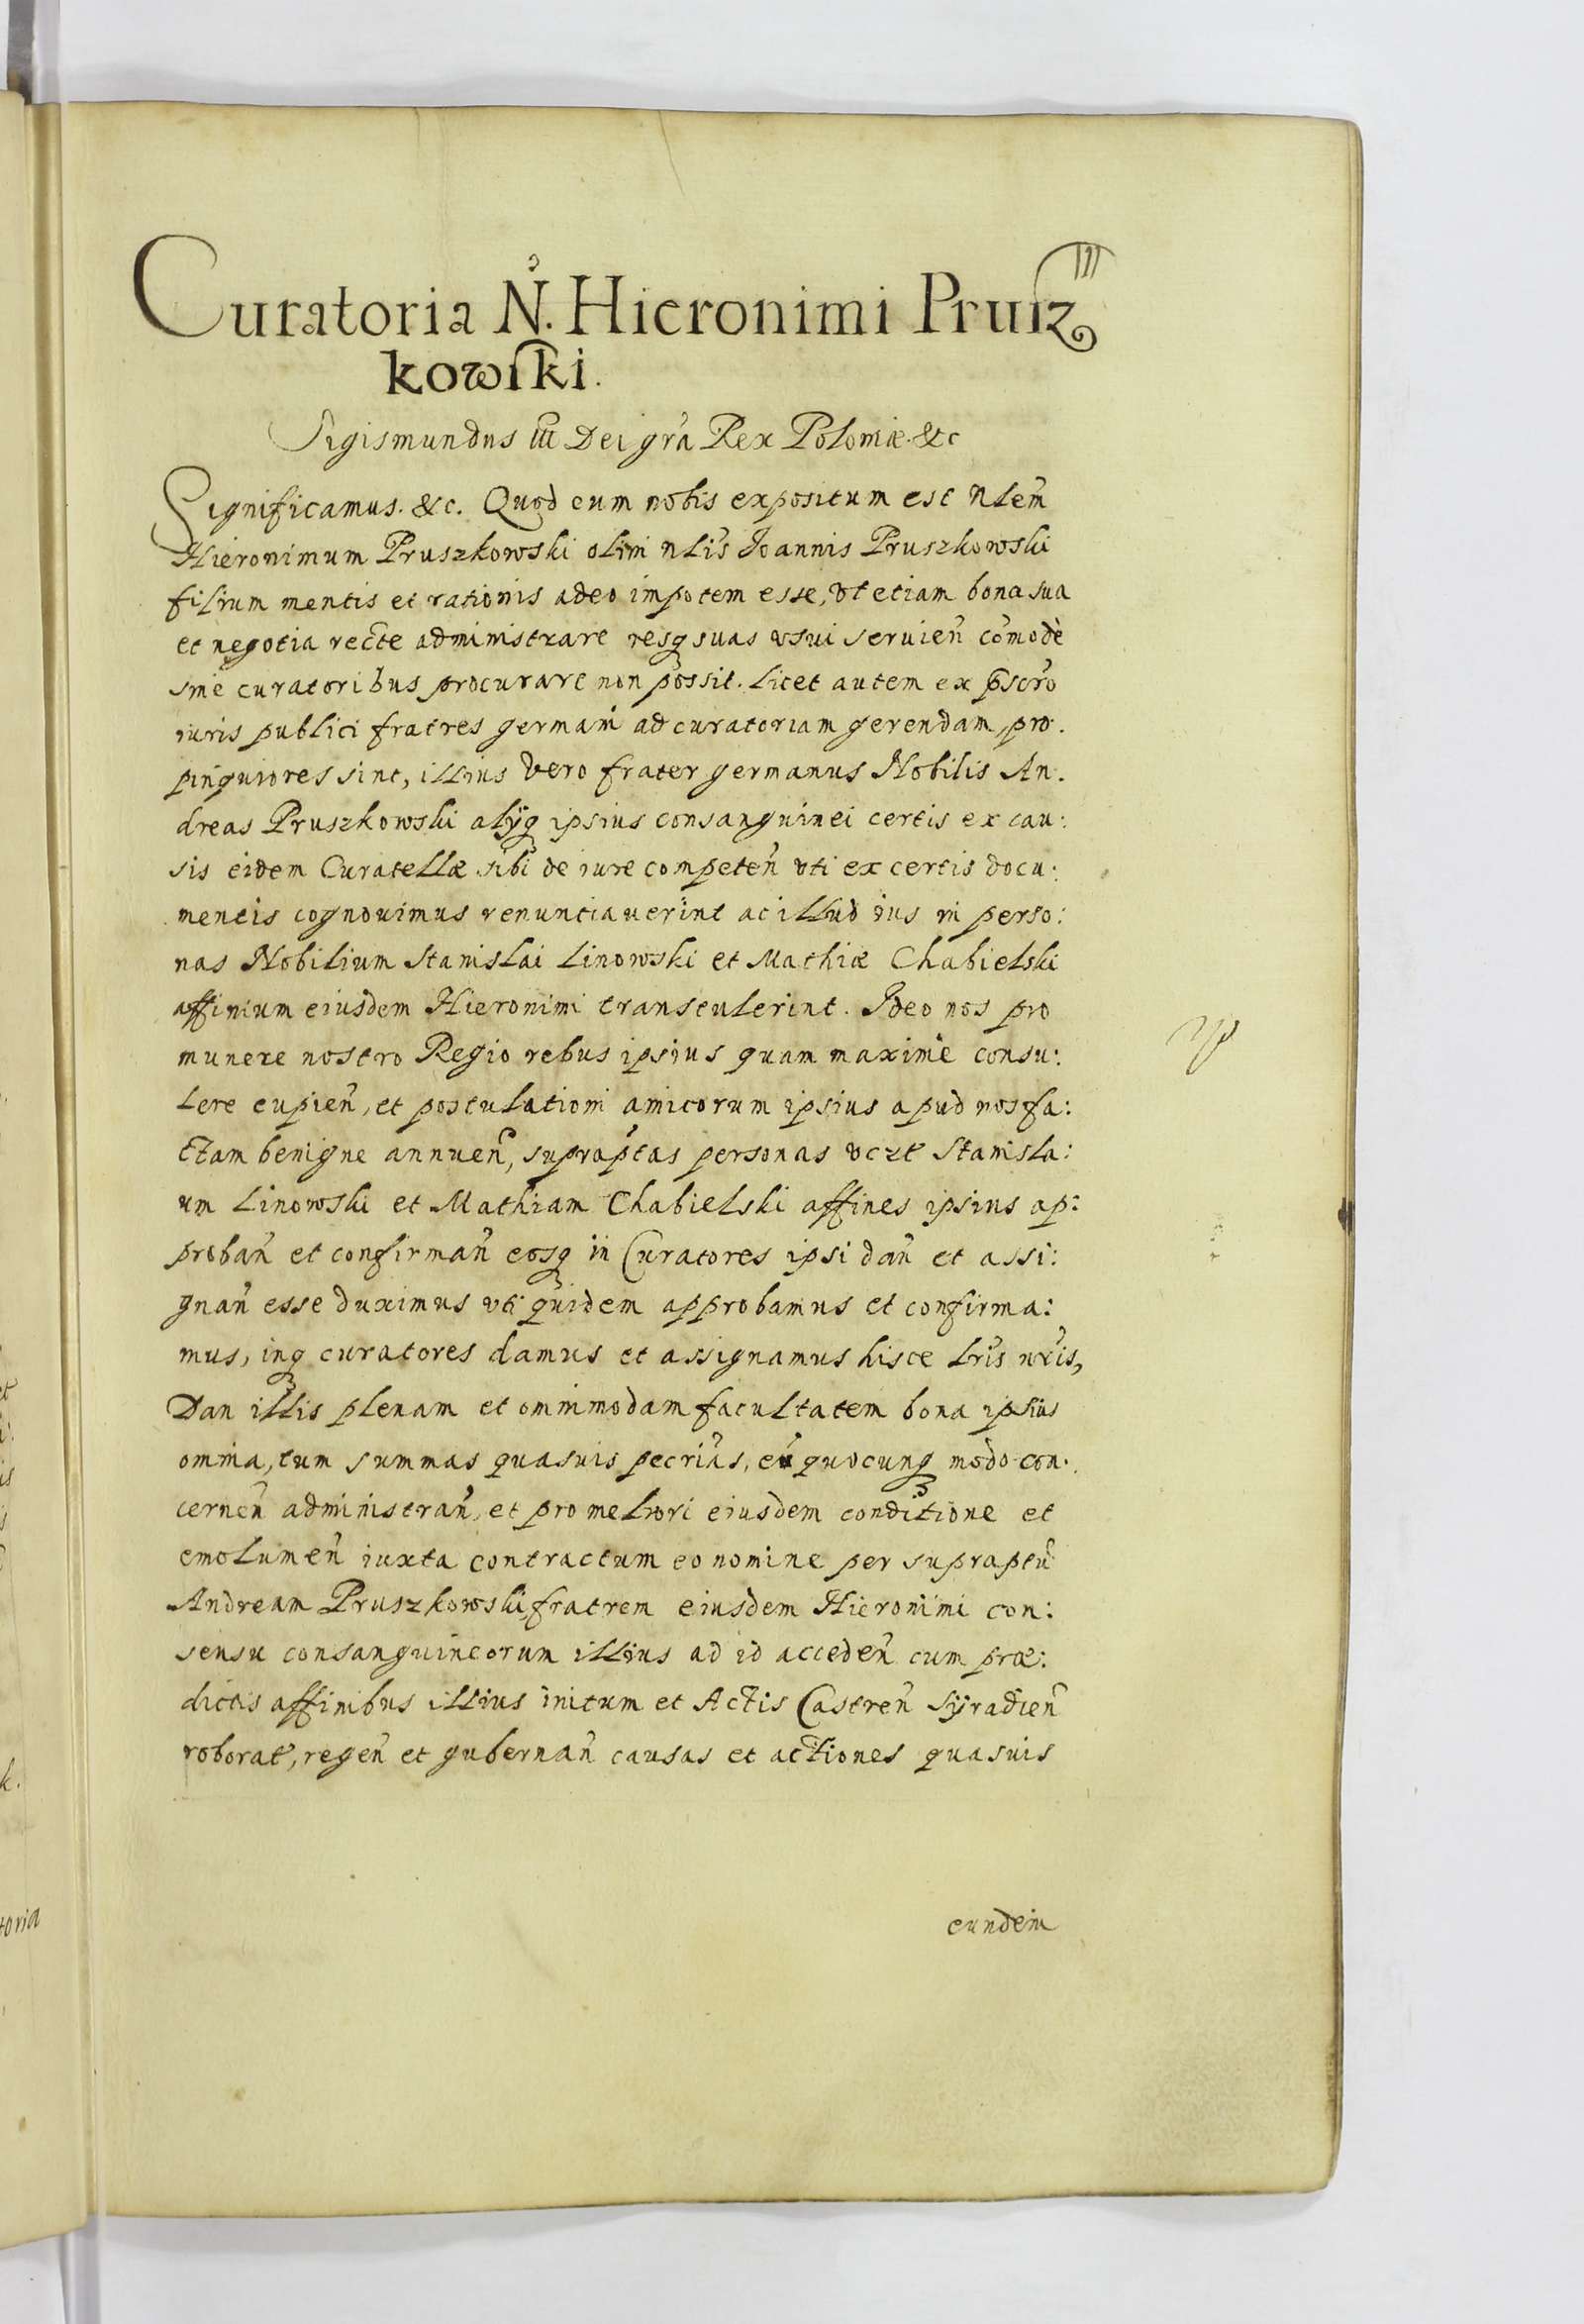 Curatoria N. Hieronimi Prusz
kowski.
Sigismundus III Dei gra Rex Poloniæ &c
Significamus. &c. Quod cum nobis expositum est Nlem
Hieronimum Pruszkowski olim nlis Joannis Pruszkowski
filium mentis et rationis adeo impotem esse, vt etiam bona sua
et negotia recte administrare resq suas vsui seruien comodè
sine curatoribus procurare non possit. Licet autem ex pscro
iuris publici fratres germani ad curatoriam gerendam, pro.
pinquiores sint, illius vero frater germanus Nobilis An.
dreas Pruszkowski alijq ipsius consanguinei certis ex cau:
sis eidem Curatellæ sibi de iure competen vti ex certis docu:
mentis cognouimus renuntiauerint ac illud ius in perso:
nas Nobilium Stanislai Linowski et Mathiæ Chabielski
affinium eiusdem Hieronimi transtulerint. Ideo nos pro
munere nostro Regio rebus ipsius quam maximè consu:
lere cupien, et postulationi amicorum ipsius apud nos fa:
ctam benigne annuen, supraptas personas vczt Stanisla:
um Linowski et Mathiam Chabielski affines ipsius ap:
proban et confirman eosq in Curatores ipsi dan et assi:
gnan esse duximus vti quidem approbamus et confirma:
mus, inq curatores damus et assignamus hisce lris nris,
Dan illis plenam et omnimodam facultatem bona ipsius
omnia, tum summas quasuis pecrias, eu quocunq modo con.
cernen administran, et pro meliori eiusdem conditione et
emolumen iuxta contractum eo nomine per supraptu
Andream Pruszkowski, fratrem eiusdem Hieronimi con:
sensu consanguineorum illius ad id acceden cum præ:
dictis affinibus illius initum et Actis Castren Syradien
roborat, regen et gubernan causas et actiones quasuis
eundem